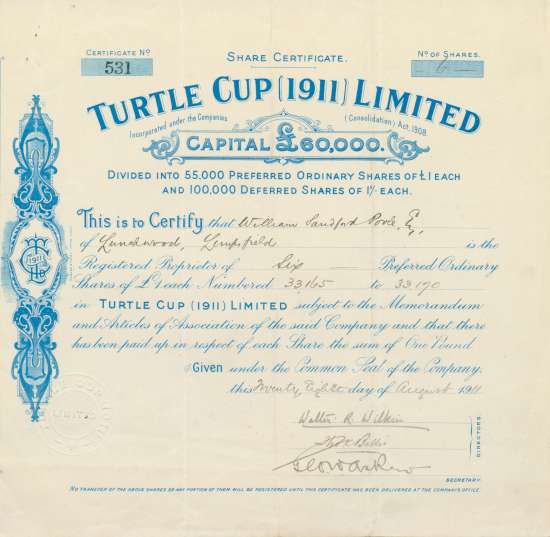 CERTIFICATE Nº
531
SHARE CERTIFICATE.
Nº OF SHARES.
6
TURTLE CUP (1911) LIMITED
Incorporated under the Companies (Consolidation) Act, 1908.
CAPITAL £60,000.
DIVIDED INTO 55,000 PREFERRED ORDINARY SHARES OF £1 EACH
AND 100,000 DEFERRED SHARES OF 1/- EACH.
This is to Certify that William Sandford Poole, Esq,
of Limpsfield is the
Registered Proprietor of Six Preferred Ordinary
Shares of £1 each Numbered 33,165 to 33,170
in TURTLE CUP (1911) LIMITED subject to the Memorandum
and Articles of Association of the said Company and that there
has been paid up in respect of each Share the sum of One Pound
1911
Given under the Common Seal of the Company,
this Twenty Eighth day of August 1911
Walter R. Wilkin
DIRECTORS.
SECRETARY.
LIMITED
NO TRANSFER OF THE ABOVE SHARES OR ANY PORTION OF THEM WILL BE REGISTERED UNTIL THIS CERTIFICATE HAS BEEN DELIVERED AT THE COMPANY'S OFFICE.